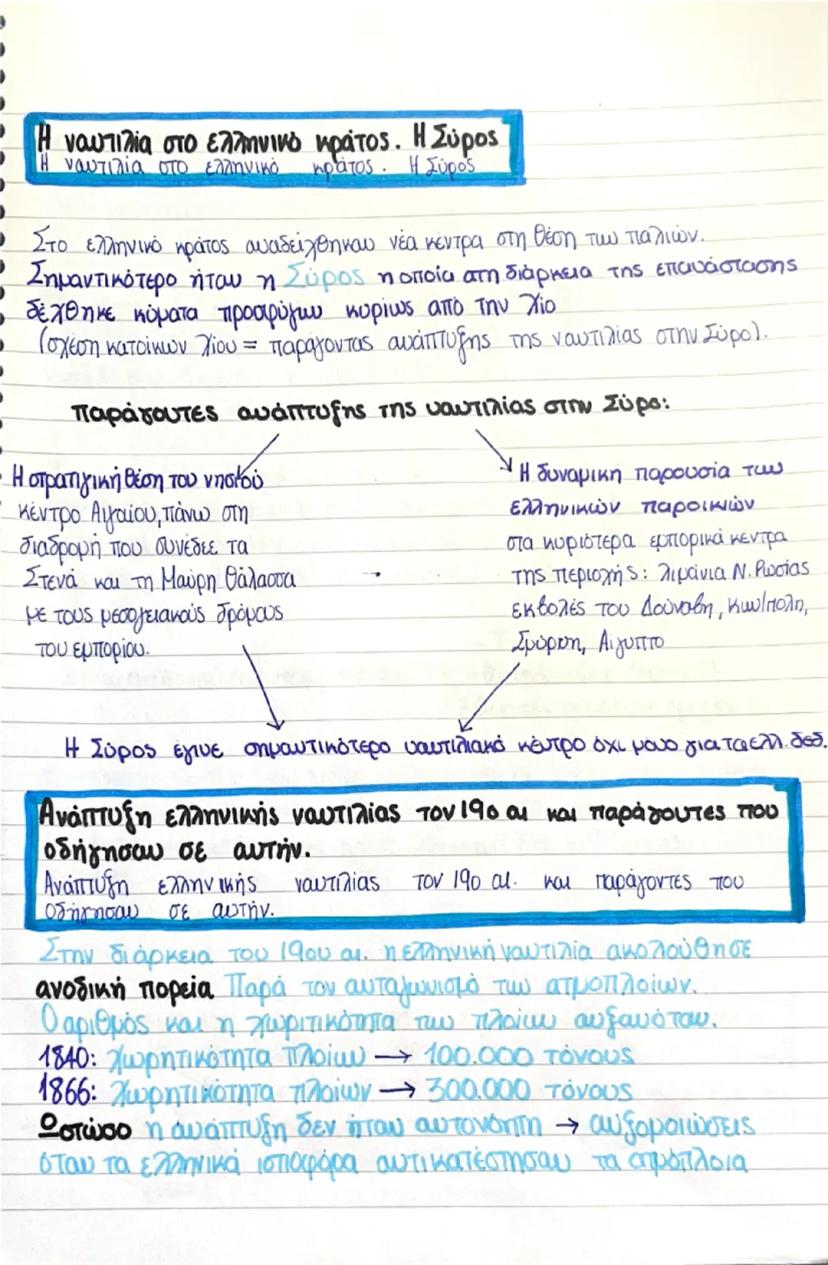 Η ναυτιλία στο ελληνικό κράτος. Η Σύρος
Η ναυτιλία στο ελληνικό κράτος. Η Σύρος
Στο ελληνικό κράτος αναδείχθηκαν νέα κέντρα στη θέση των παλιών.
Σημαντικότερο ήταν η Σύρος η οποία στη διάρκεια της επανάστασης
δέχθηκε κύματα προσφύγων κυρίως από την Χίο
(σχέση κατοίκων Χίου = παράγοντας ανάπτυξης της ναυτιλίας στην Σύρο).
παράγοντες ανάπτυξης της ναυτιλίας στην Σύρο:
Η στρατηγική θέση του νησιού
κέντρο Αιγαίου, πάνω στη
διαδρομή που συνδέει τα
Στενά και τη Μαύρη Θάλασσα
με τους μεσογειακούς δρόμους
του εμπορίου.
Η δυναμική παρουσία των
ελληνικών παροικιών
στα κυριότερα εμπορικά κέντρα
της περιοχής: λιμάνια Ν. Ρωσίας
εκβολές του Δούναβη, Κων/πολη,
Σμύρνη, Αιγυπτο
Η Σύρος έγινε σημαντικότερο ναυτιλιακό κέντρο όχι μόνο για τα ελλ. δεδ.
Ανάπτυξη ελληνικής ναυτιλίας τον 19ο αι και παράγοντες που
οδήγησαν σε αυτήν.
Ανάπτυξη ελληνικής ναυτιλίας τον 19ο αι. και παράγοντες που
οδήγησαν σε αυτήν.
Στην διάρκεια του 19ου αι. η ελληνική ναυτιλία ακολούθησε
ανοδική πορεία Παρά τον ανταγωνισμό των ατμοπλοίων.
Ο αριθμός και η χωριτικότητα των πλοίων αυξανόταν.
1840: Χωρητικότητα πλοίων → 100.000 τόνους
1866: Χωρητικότητα πλοίων → 300.000 τόνους
Ωστώσο η ανάπτυξη δεν ήταν αυτονόητη → αυξομοιώσεις
όταν τα ελληνικά ιστιοφόρα αντικατέστησαν τα ατμόπλοια